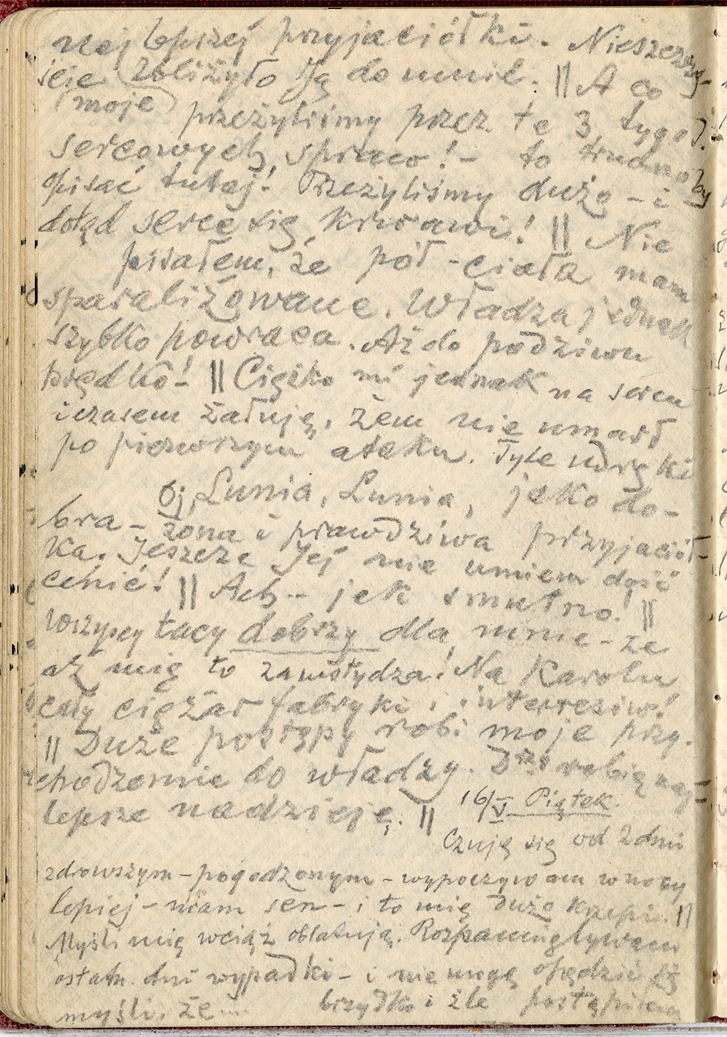 najlepszej przyjaciółki. Nieszczę-
ście zbliżyło Ją do mnie. || A co
(moje) przeżyliśmy przez te 3 tygod.
sercowych spraw! - to trudno by
opisać tutaj! Przeżyliśmy dużo - i
dotąd serce się krwawi! || Nie
pisałem, że pół-ciała mam
sparaliżowane. Władza jednak
szybko powraca. Aż do podziwu
prędko! || Ciężko mi jednak na sercu
i czasem żałuję, żem nie umarł
po pierwszym ataku. Tyle udręki
Oj, Lunia, Lunia, jako do-
bra - żona i prawdziwa przyjaciół-
ka. Jeszcze Jej nie umiem dość
cenić! || Ach - jak smutno! ||
Wszyscy tacy dobrzy dla mnie - że
aż mię to zawstydza! Na Karolu
cały ciężar fabryki i interesów!
|| Duże postępy robi moje przy-
chodzenie do władzy. Drzy robią naj-
lepsze nadzieje. || 16/V Piątek.
Czuję się od 2 dni
zdrowszym - pogodzonym - wypoczywam w nocy
lepiej - mam sen - i to mię dużo krzepi. ||
Myśli mię wciąż oblatują. Rozpamiętywam
ostatn. dni wypadki - i nie mogę opędzić się
myśli, że... brzydko i źle postąpiłem